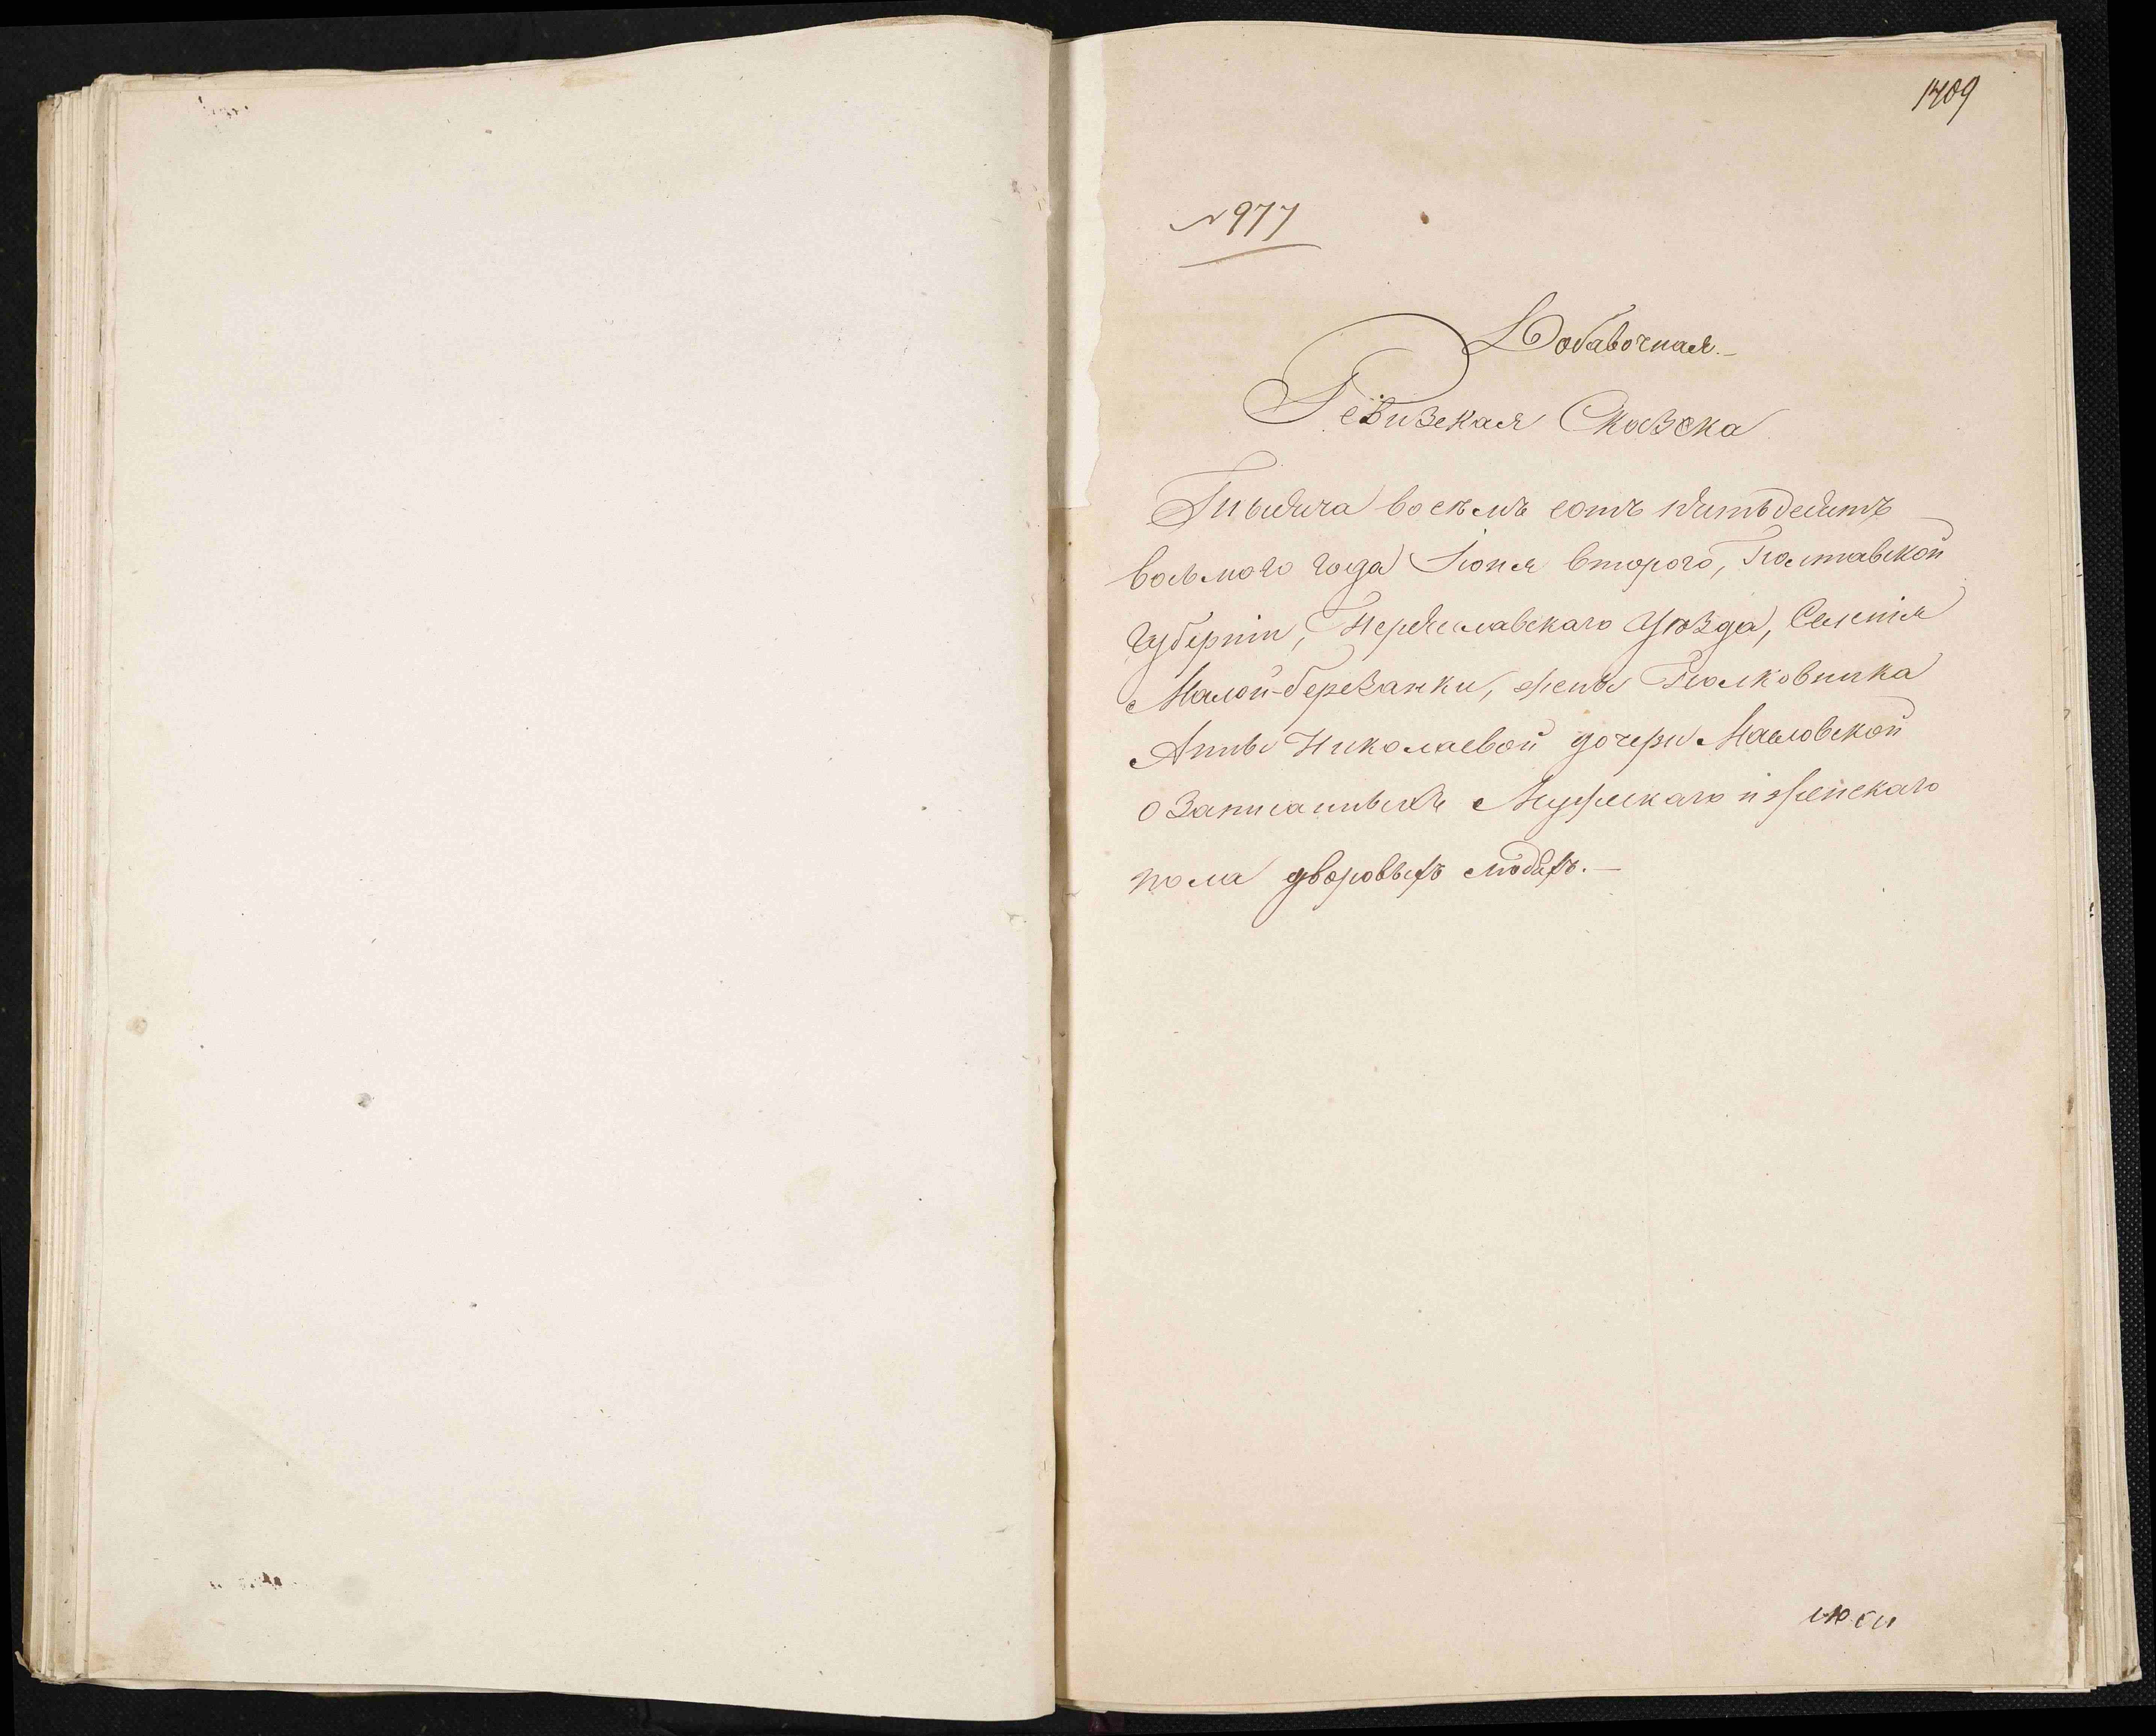 1409
№ 977
Добавочная.-
Ревизская Сказка
Тысяча восемь сотъ пятьдесятъ
восьмого года Іюня второго, Полтавской
Губерніи, Переяславскаго Уѣзда, Селенія
Малой-березанки, жены Полковника
Анны Николаевой дочери Масловской
о записанныхъ Мужескаго и женскаго
пола дворовыхъ людяхъ.-